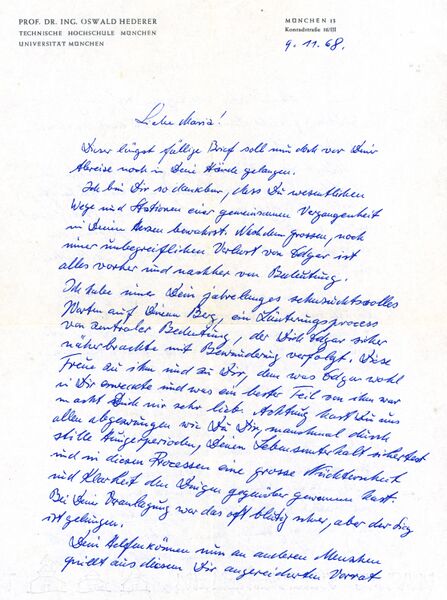 PROF. DR. ING. OSWALD HEDERER
TECHNISCHE HOCHSCHULE MÜNCHEN
UNIVERSITÄT MÜNCHEN
MÜNCHEN 13
Konradstraße 16/III
9. 11. 68.
Liebe Maria!
Dieser längst fällige Brief soll nun doch vor Deiner
Abreise noch in Deine Hände gelangen.
Ich bin Dir so dankbar, dass Du wesentlichen
Wege und Stationen einer gemeinsamen Vergangenheit
in Deinem Herzen bewahrst. Nach dem grossen, noch
immer unbegreiflichen Verlust von Edgar ist
alles vorher und nachher von Bedeutung.
Ich habe immer Dein jahrelanges sehnsuchtsvolles
Warten auf Deinem Berg, ein Läuterungsprocess
von zentraler Bedeutung, der Dich Edgar sicher
näherbrachte mit Bewunderung verfolgt. Diese
Treue zu ihm und zu Dir, dem was Edgar wohl
in Dir erweckte und was ein bester Teil von ihm war
macht Dich mir sehr lieb. Achtung hast Du uns
allen abgezwungen wie Du Dir, manchmal durch
stille Hungerperioden, Deinen Lebensunterhalt sichertest
und in diesen Prozessen eine grosse Nüchternheit
und Klarheit den Dingen gegenüber gewonnen hast.
Bei Deiner Veranlagung war das oft blutig schwer, aber der Sieg
ist gelungen.
Dein Helfenkönnen nun an anderen Menschen
quillt aus diesem Dir angereicherten Vorrat